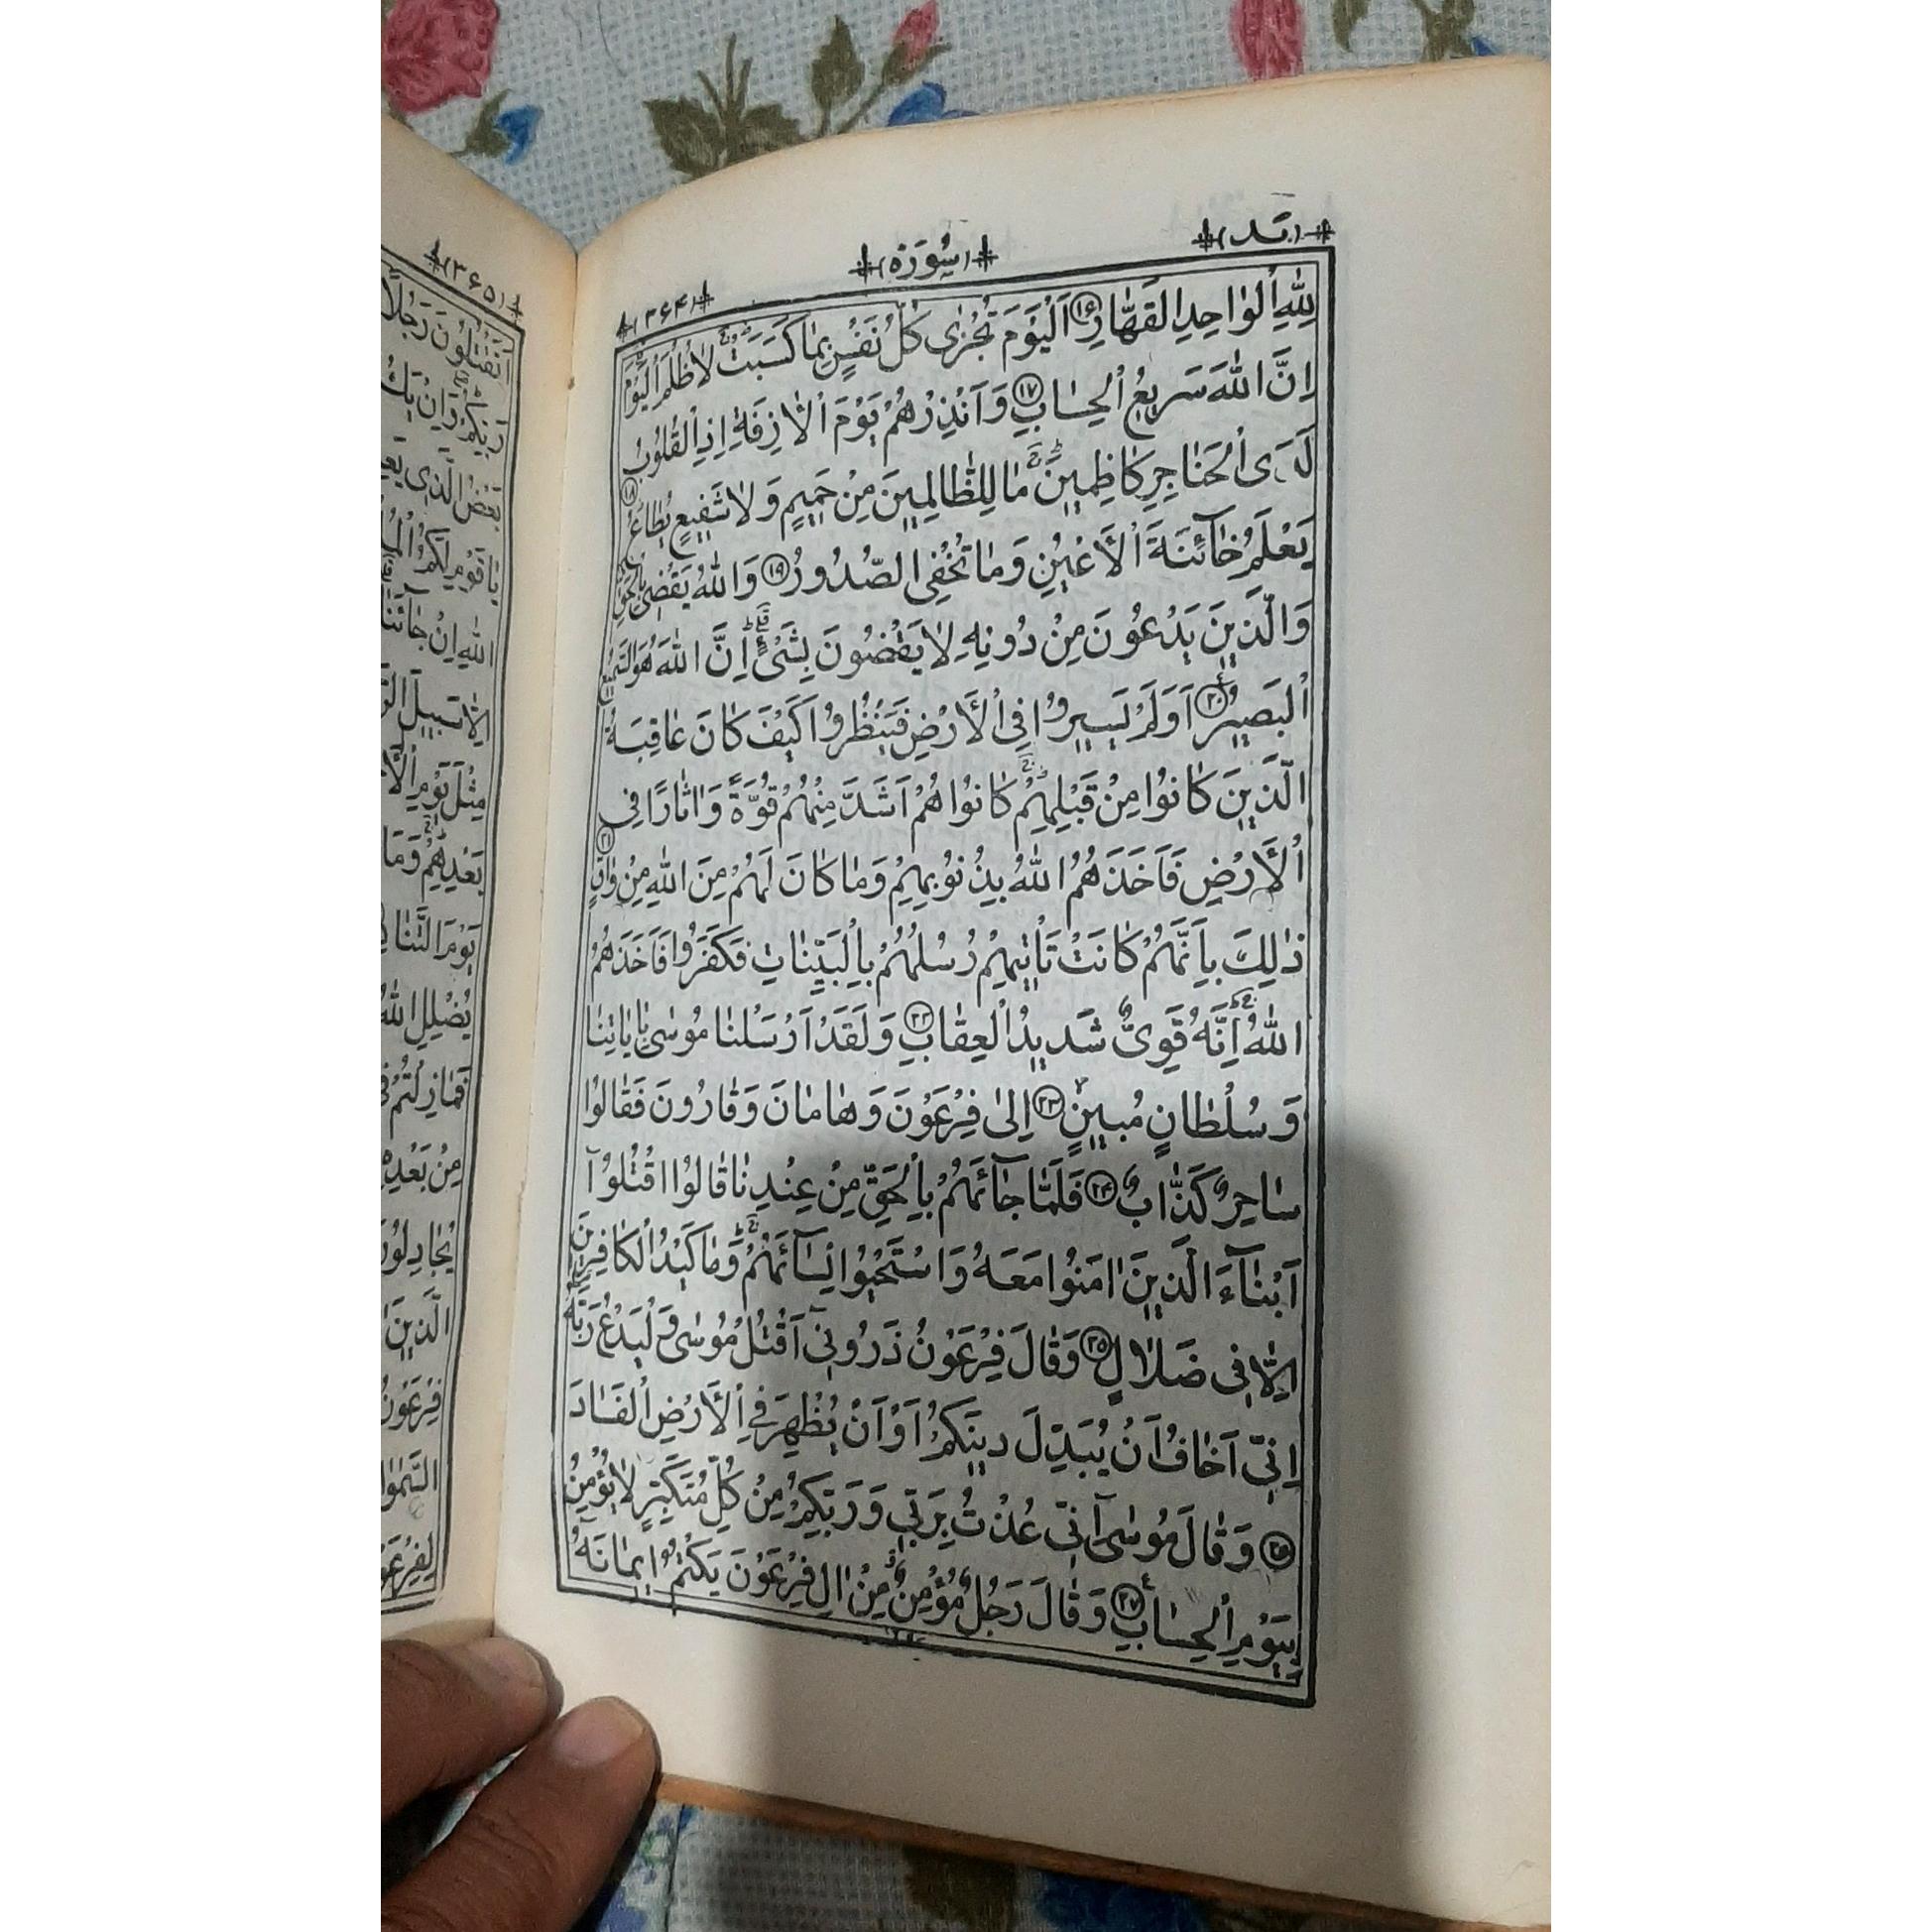 (۳۶۴) (سُورَة) (بد)
لِلّٰهِ الْوٰاحِدِ الْقَهّٰارِ ﴿۱۶﴾ اَلْيَوْمَ تُجْزٰى كُلُّ نَفْسٍ بِمٰا كَسَبَتْ لٰا ظُلْمَ الْيَوْمَ
اِنَّ اللّٰهَ سَرِيعُ الْحِسٰابِ ﴿۱۷﴾ وَاَنْذِرْهُمْ يَوْمَ الْاٰزِفَةِ اِذِ الْقُلُوبُ
لَدَى الْحَنٰاجِرِ كٰاظِمِينَ مٰا لِلظّٰالِمِينَ مِنْ حَمِيمٍ وَلٰا شَفِيعٍ يُطٰاعُ ﴿۱۸﴾
يَعْلَمُ خٰآئِنَةَ الْاَعْيُنِ وَمٰا تُخْفِى الصُّدُورُ ﴿۱۹﴾ وَاللّٰهُ يَقْضِى بِالْحَقِّ
وَالَّذِينَ يَدْعُونَ مِنْ دُونِهِ لٰا يَقْضُونَ بِشَىْءٍ اِنَّ اللّٰهَ هُوَ السَّمِيعُ
الْبَصِيرُ ﴿۲۰﴾ اَوَلَمْ يَسِيرُوا فِى الْاَرْضِ فَيَنْظُرُوا كَيْفَ كٰانَ عٰاقِبَةُ
الَّذِينَ كٰانُوا مِنْ قَبْلِهِمْ كٰانُوا هُمْ اَشَدَّ مِنْهُمْ قُوَّةً وَاٰثٰارًا فِى
الْاَرْضِ فَاَخَذَهُمُ اللّٰهُ بِذُنُوبِهِمْ وَمٰا كٰانَ لَهُمْ مِنَ اللّٰهِ مِنْ وٰاقٍ ﴿۲۱﴾
ذٰلِكَ بِاَنَّهُمْ كٰانَتْ تَاْتِيهِمْ رُسُلُهُمْ بِالْبَيِّنٰاتِ فَكَفَرُوا فَاَخَذَهُمُ
اللّٰهُ اِنَّهُ قَوِىٌّ شَدِيدُ الْعِقٰابِ ﴿۲۲﴾ وَلَقَدْ اَرْسَلْنٰا مُوسٰى بِاٰيٰاتِنٰا
وَسُلْطٰانٍ مُبِينٍ ﴿۲۳﴾ اِلٰى فِرْعَوْنَ وَهٰامٰانَ وَقٰارُونَ فَقٰالُوا
سٰاحِرٌ كَذّٰابٌ ﴿۲۴﴾ فَلَمّٰا جٰآئَهُمْ بِالْحَقِّ مِنْ عِنْدِنٰا قٰالُوا اقْتُلُوآ
اَبْنٰآءَ الَّذِينَ اٰمَنُوا مَعَهُ وَاسْتَحْيُوا نِسٰآئَهُمْ وَمٰا كَيْدُ الْكٰافِرِينَ
اِلّٰا فِى ضَلٰالٍ ﴿۲۵﴾ وَقٰالَ فِرْعَوْنُ ذَرُونِىٓ اَقْتُلْ مُوسٰى وَلْيَدْعُ رَبَّهُ
اِنِّىٓ اَخٰافُ اَنْ يُبَدِّلَ دِينَكُمْ اَوْ اَنْ يُظْهِرَ فِى الْاَرْضِ الْفَسٰادَ
﴿۲۶﴾ وَقٰالَ مُوسٰىٓ اِنِّى عُذْتُ بِرَبِّى وَرَبِّكُمْ مِنْ كُلِّ مُتَكَبِّرٍ لٰا يُؤْمِنُ
بِيَوْمِ الْحِسٰابِ ﴿۲۷﴾ وَقٰالَ رَجُلٌ مُؤْمِنٌ مِنْ اٰلِ فِرْعَوْنَ يَكْتُمُ اِيمٰانَهُ
(۳۶۵)
اَتَقْتُلُونَ رَجُلًا
رَبِّكُمْ وَاِنْ يَكُ
بَعْضُ الَّذِى
يٰا قَوْمِ لَكُمُ
اللّٰهِ اِنْ جٰآئَنٰا
اِلّٰا سَبِيلَ
مِثْلَ يَوْمِ
بَعْدِهِمْ وَمَا
يَوْمَ التَّنٰادِ
يُضْلِلِ اللّٰهُ
فَمٰا زِلْتُمْ
مِنْ بَعْدِهِ
يُجٰادِلُونَ
الَّذِينَ
فِرْعَوْنُ
لِفِرْعَوْنَ